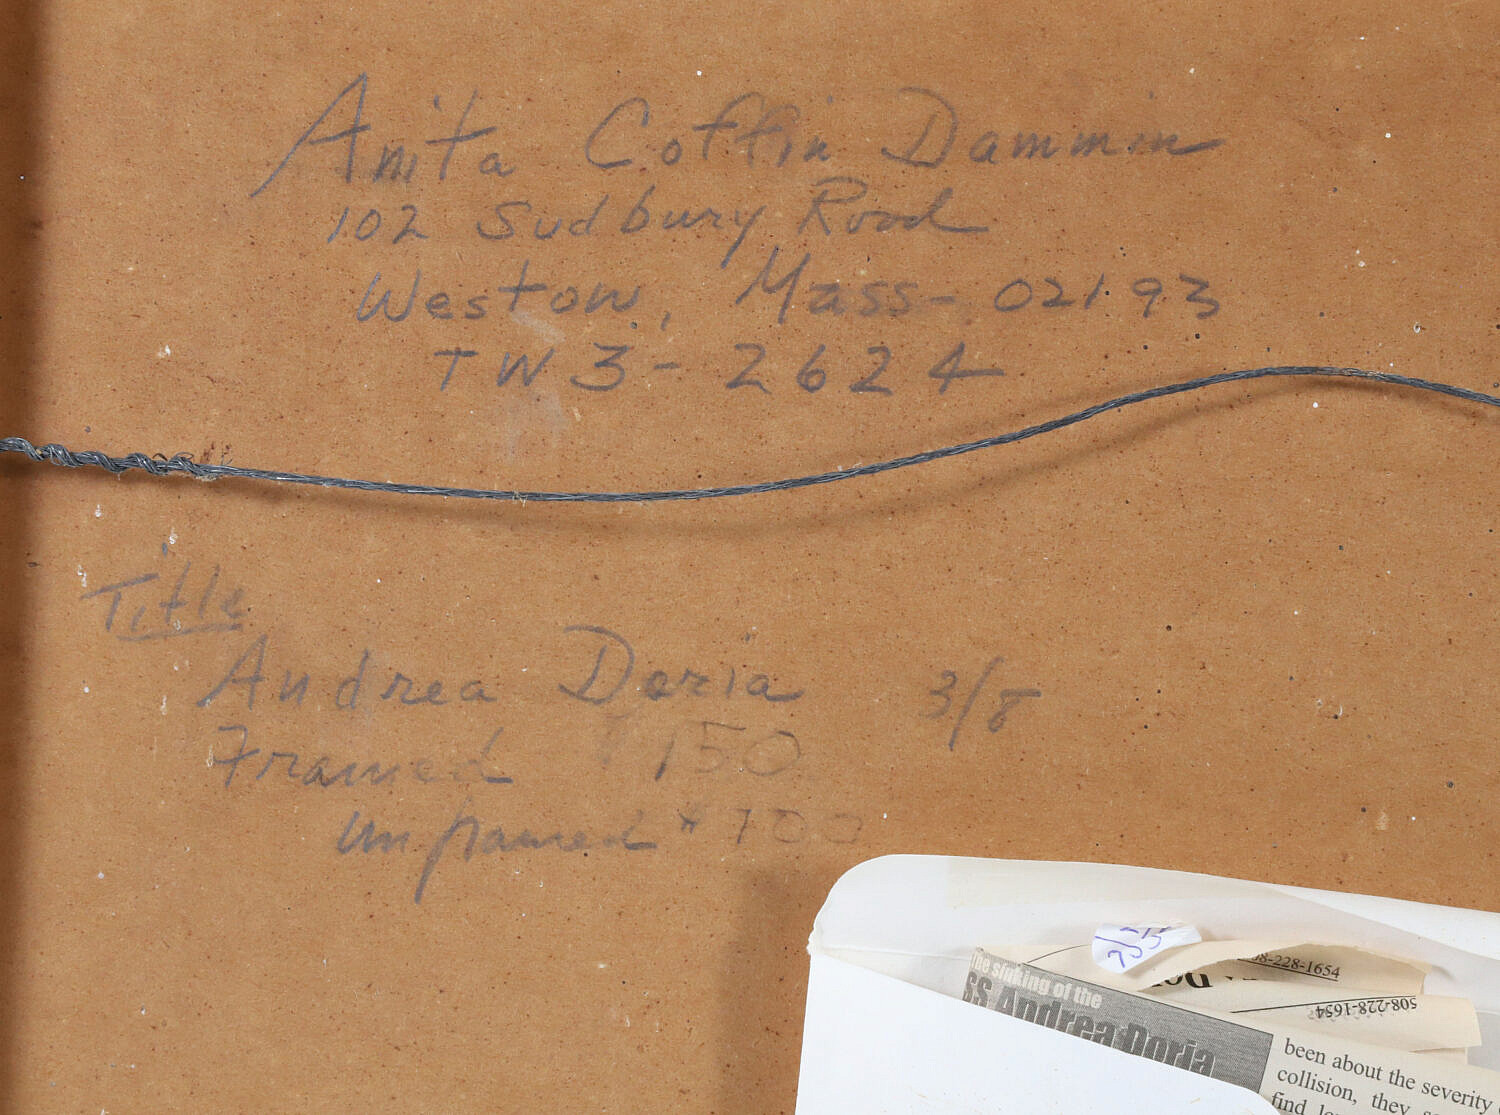 Anita Coffin Dammin
102 Sudbury Road
Weston, Mass- 02193
TW3-2624
Title
Andrea Doria 3/8
Framed 150
Unframed $100
508-228-1654
the sinking of the
SS Andrea Doria
been about the severity
collision, they
find